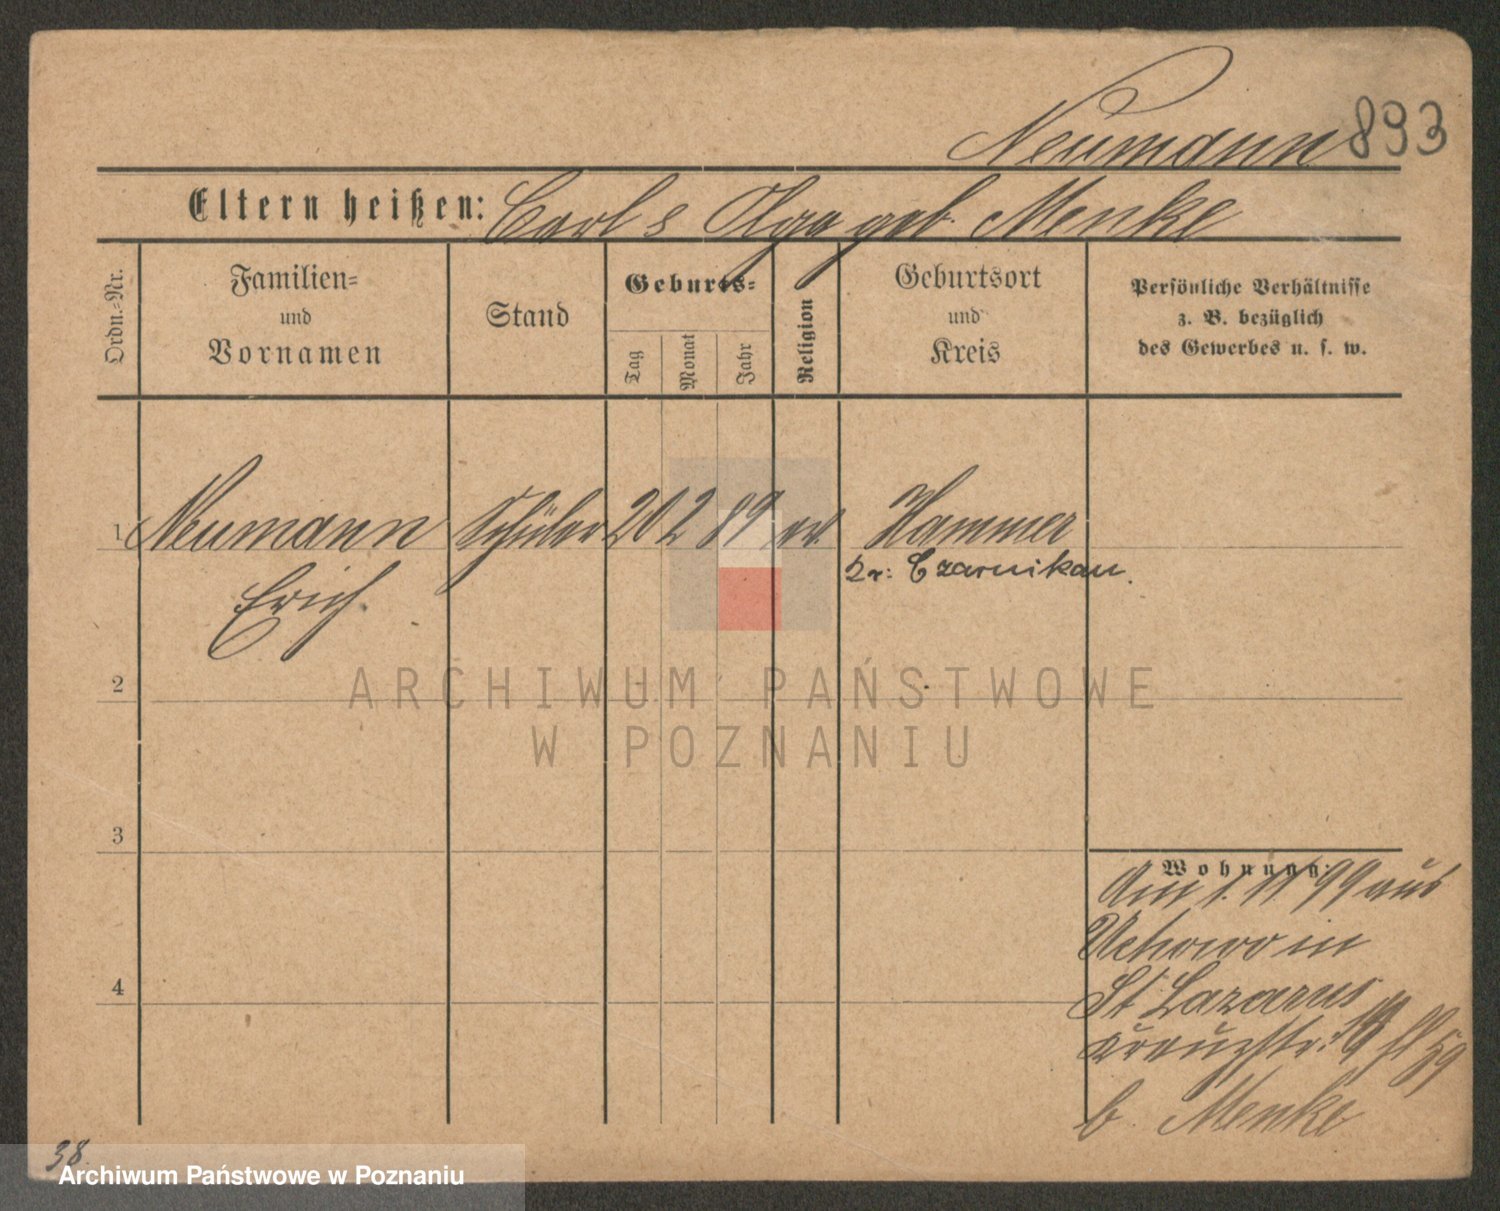 Neumann 893
Eltern heißen: Carl & Olga geb. Menke
Ordn.-Nr.
Familien= und Vornamen
Stand
Geburts=
Tag
Monat
Jahr
Religion
Geburtsort und Kreis
Persönliche Verhältnisse
z. B. bezüglich
des Gewerbes u. s. w.
1 Neumann Schüler 20 2 89 ev. Hammer
Kr: Czarnikau.
Erich
2
ARCHIWUM PAŃSTWOWE
W POZNANIU
3
Wohnung:
Am 1. 11 99 aus
in
4
St Lazarus
Kreuzstr:
b. Menke
38.
Archiwum Państwowe w Poznaniu